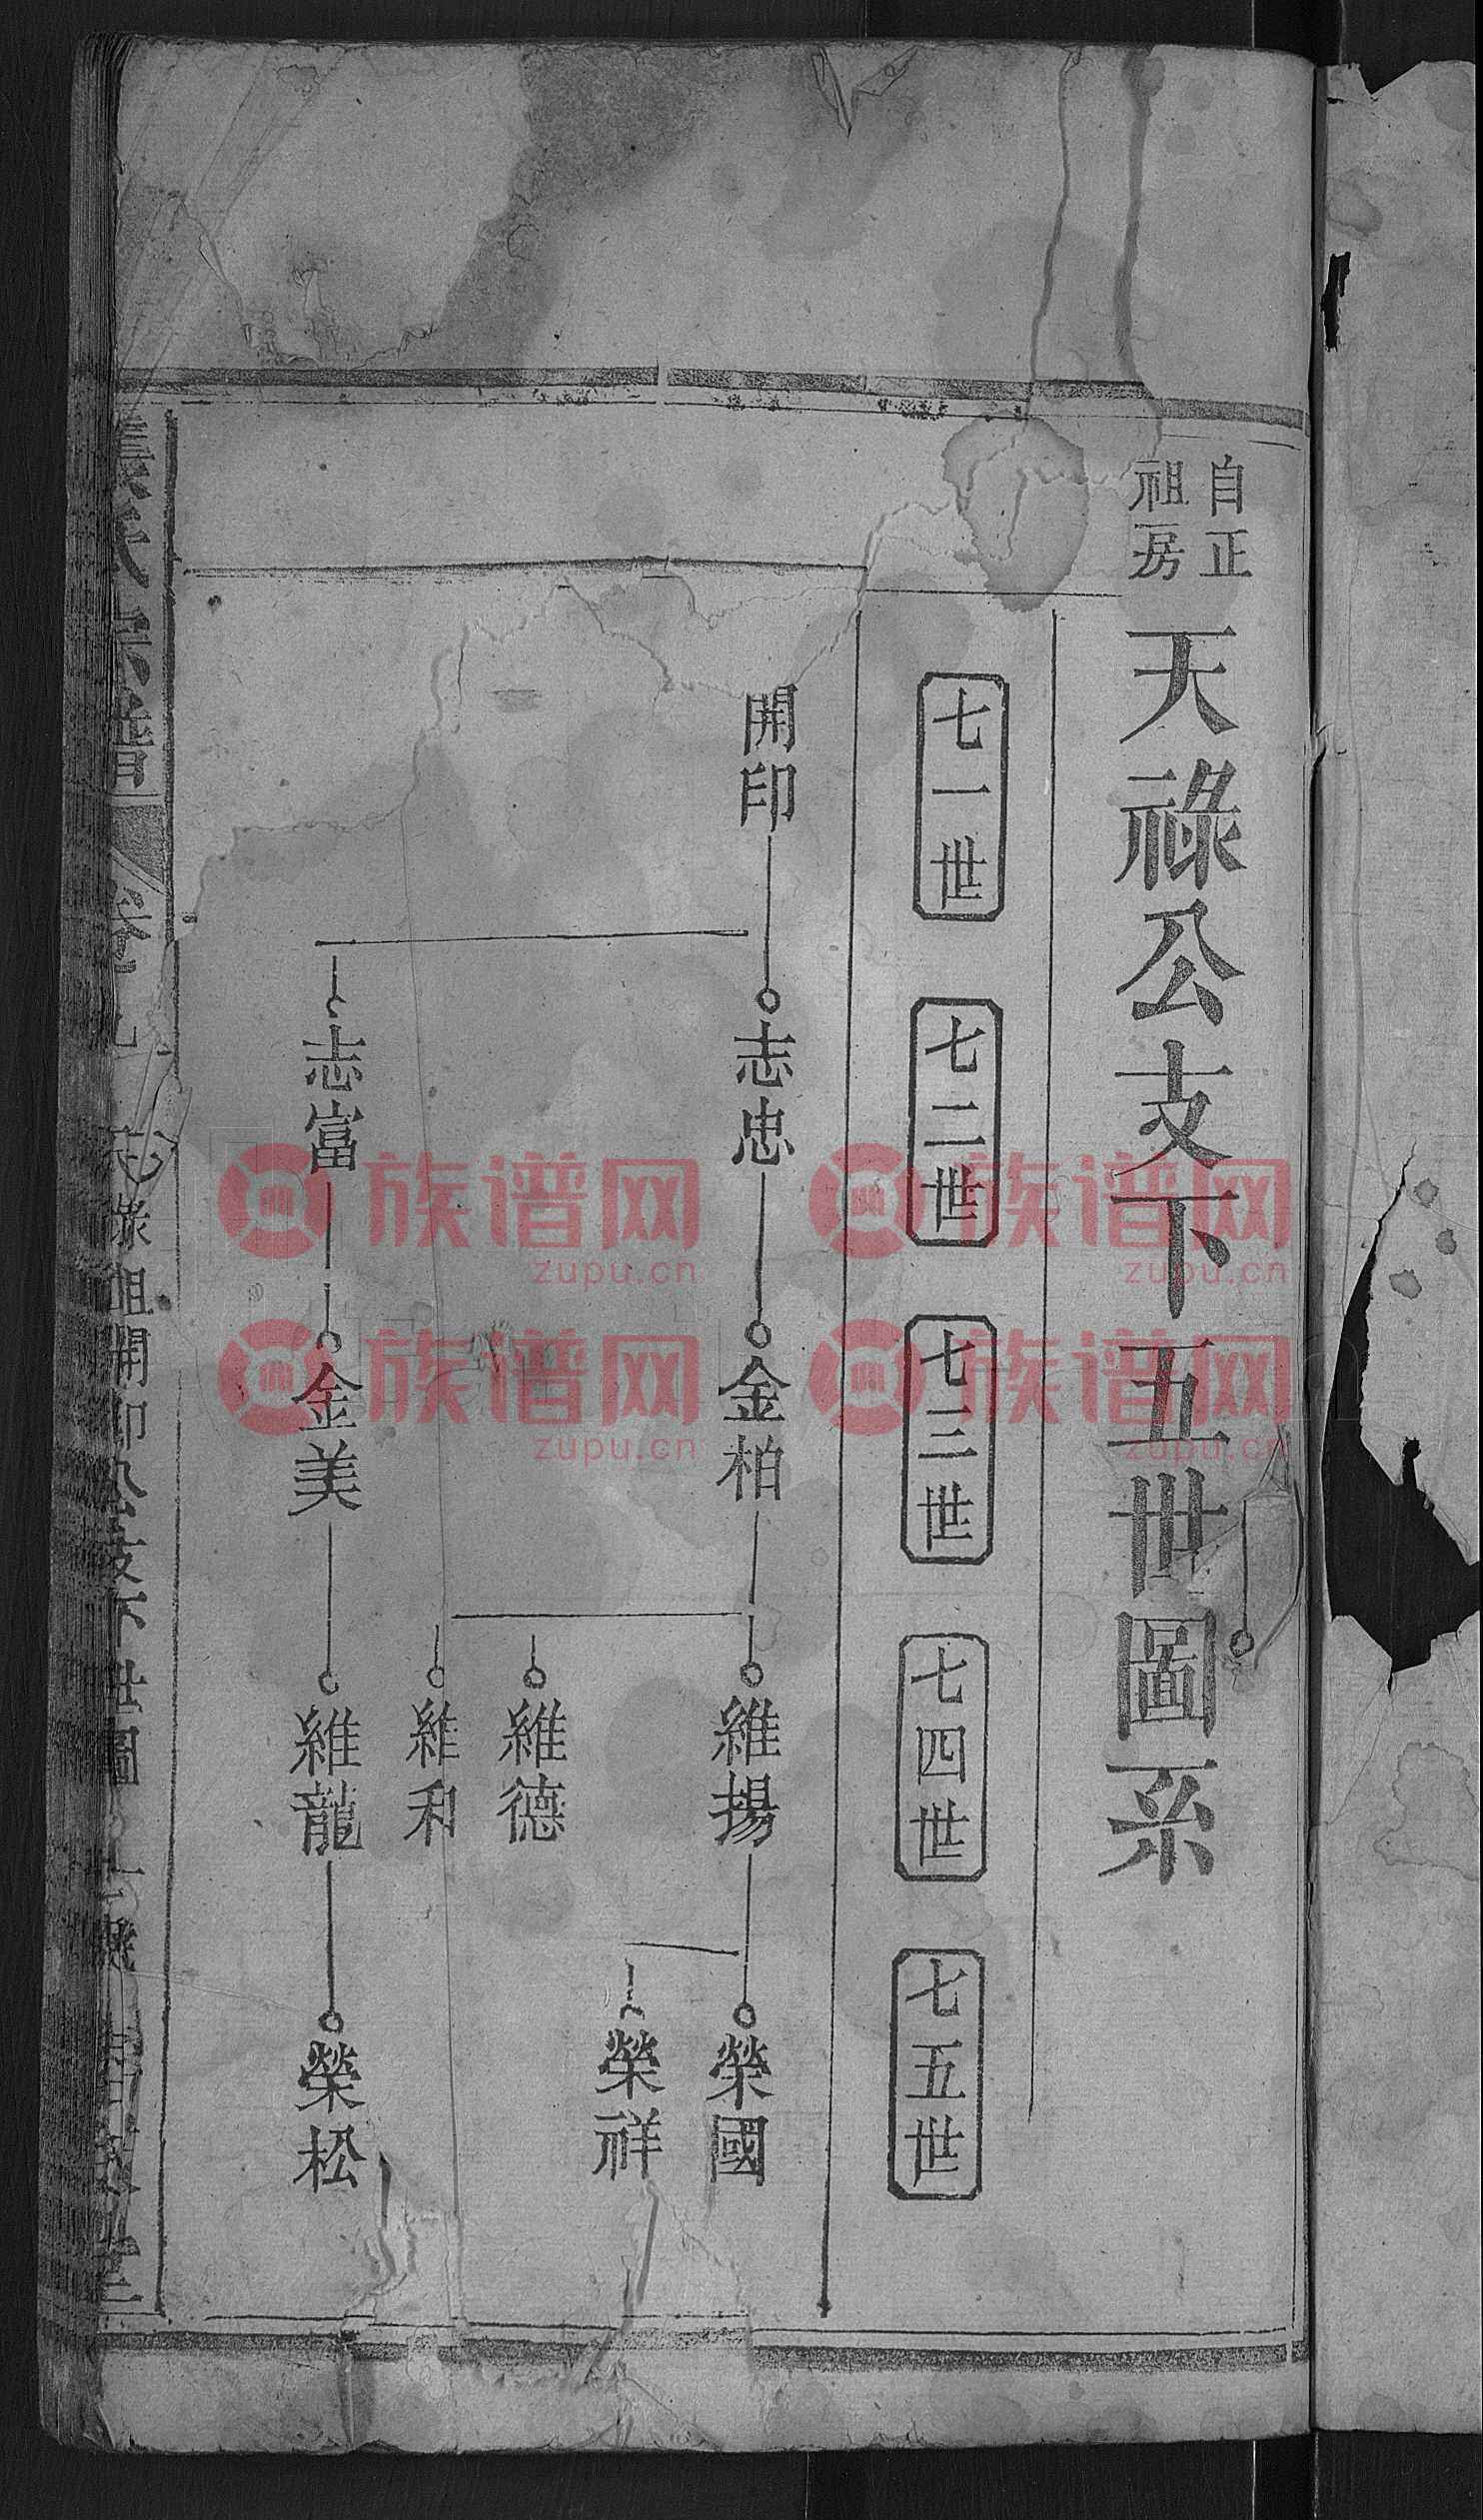 自正
祖房
天祿公支下五世圖系
七一世
七二世
七三世
七四世
七五世
開印
志忠
金柏
維揚
榮國
榮祥
維德
維和
志富
金美
維龍
榮松
氏
卷九
祖開印公支下世圖
族谱网
zupu.cn
族谱网
zupu.cn
族谱网
zupu.cn
族谱网
zupu.cn